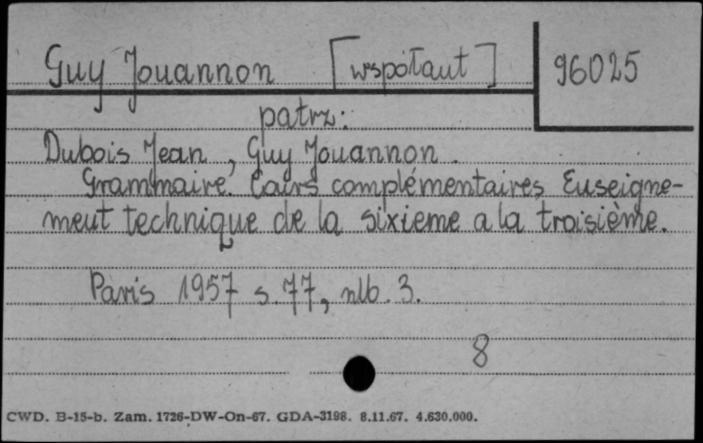 Guy Jouannon [współaut] 96025
patrz:
Dubois Jean, Guy Jouannon.
Grammaire. Cours complémentaires Enseigne-
ment technique de la sixieme a la troisième.
Paris 1957 s. 77, nlb. 3.
8
CWD. B-15-b. Zam. 1726-DW-On-67. GDA-3198. 8.11.67. 4.630.000.